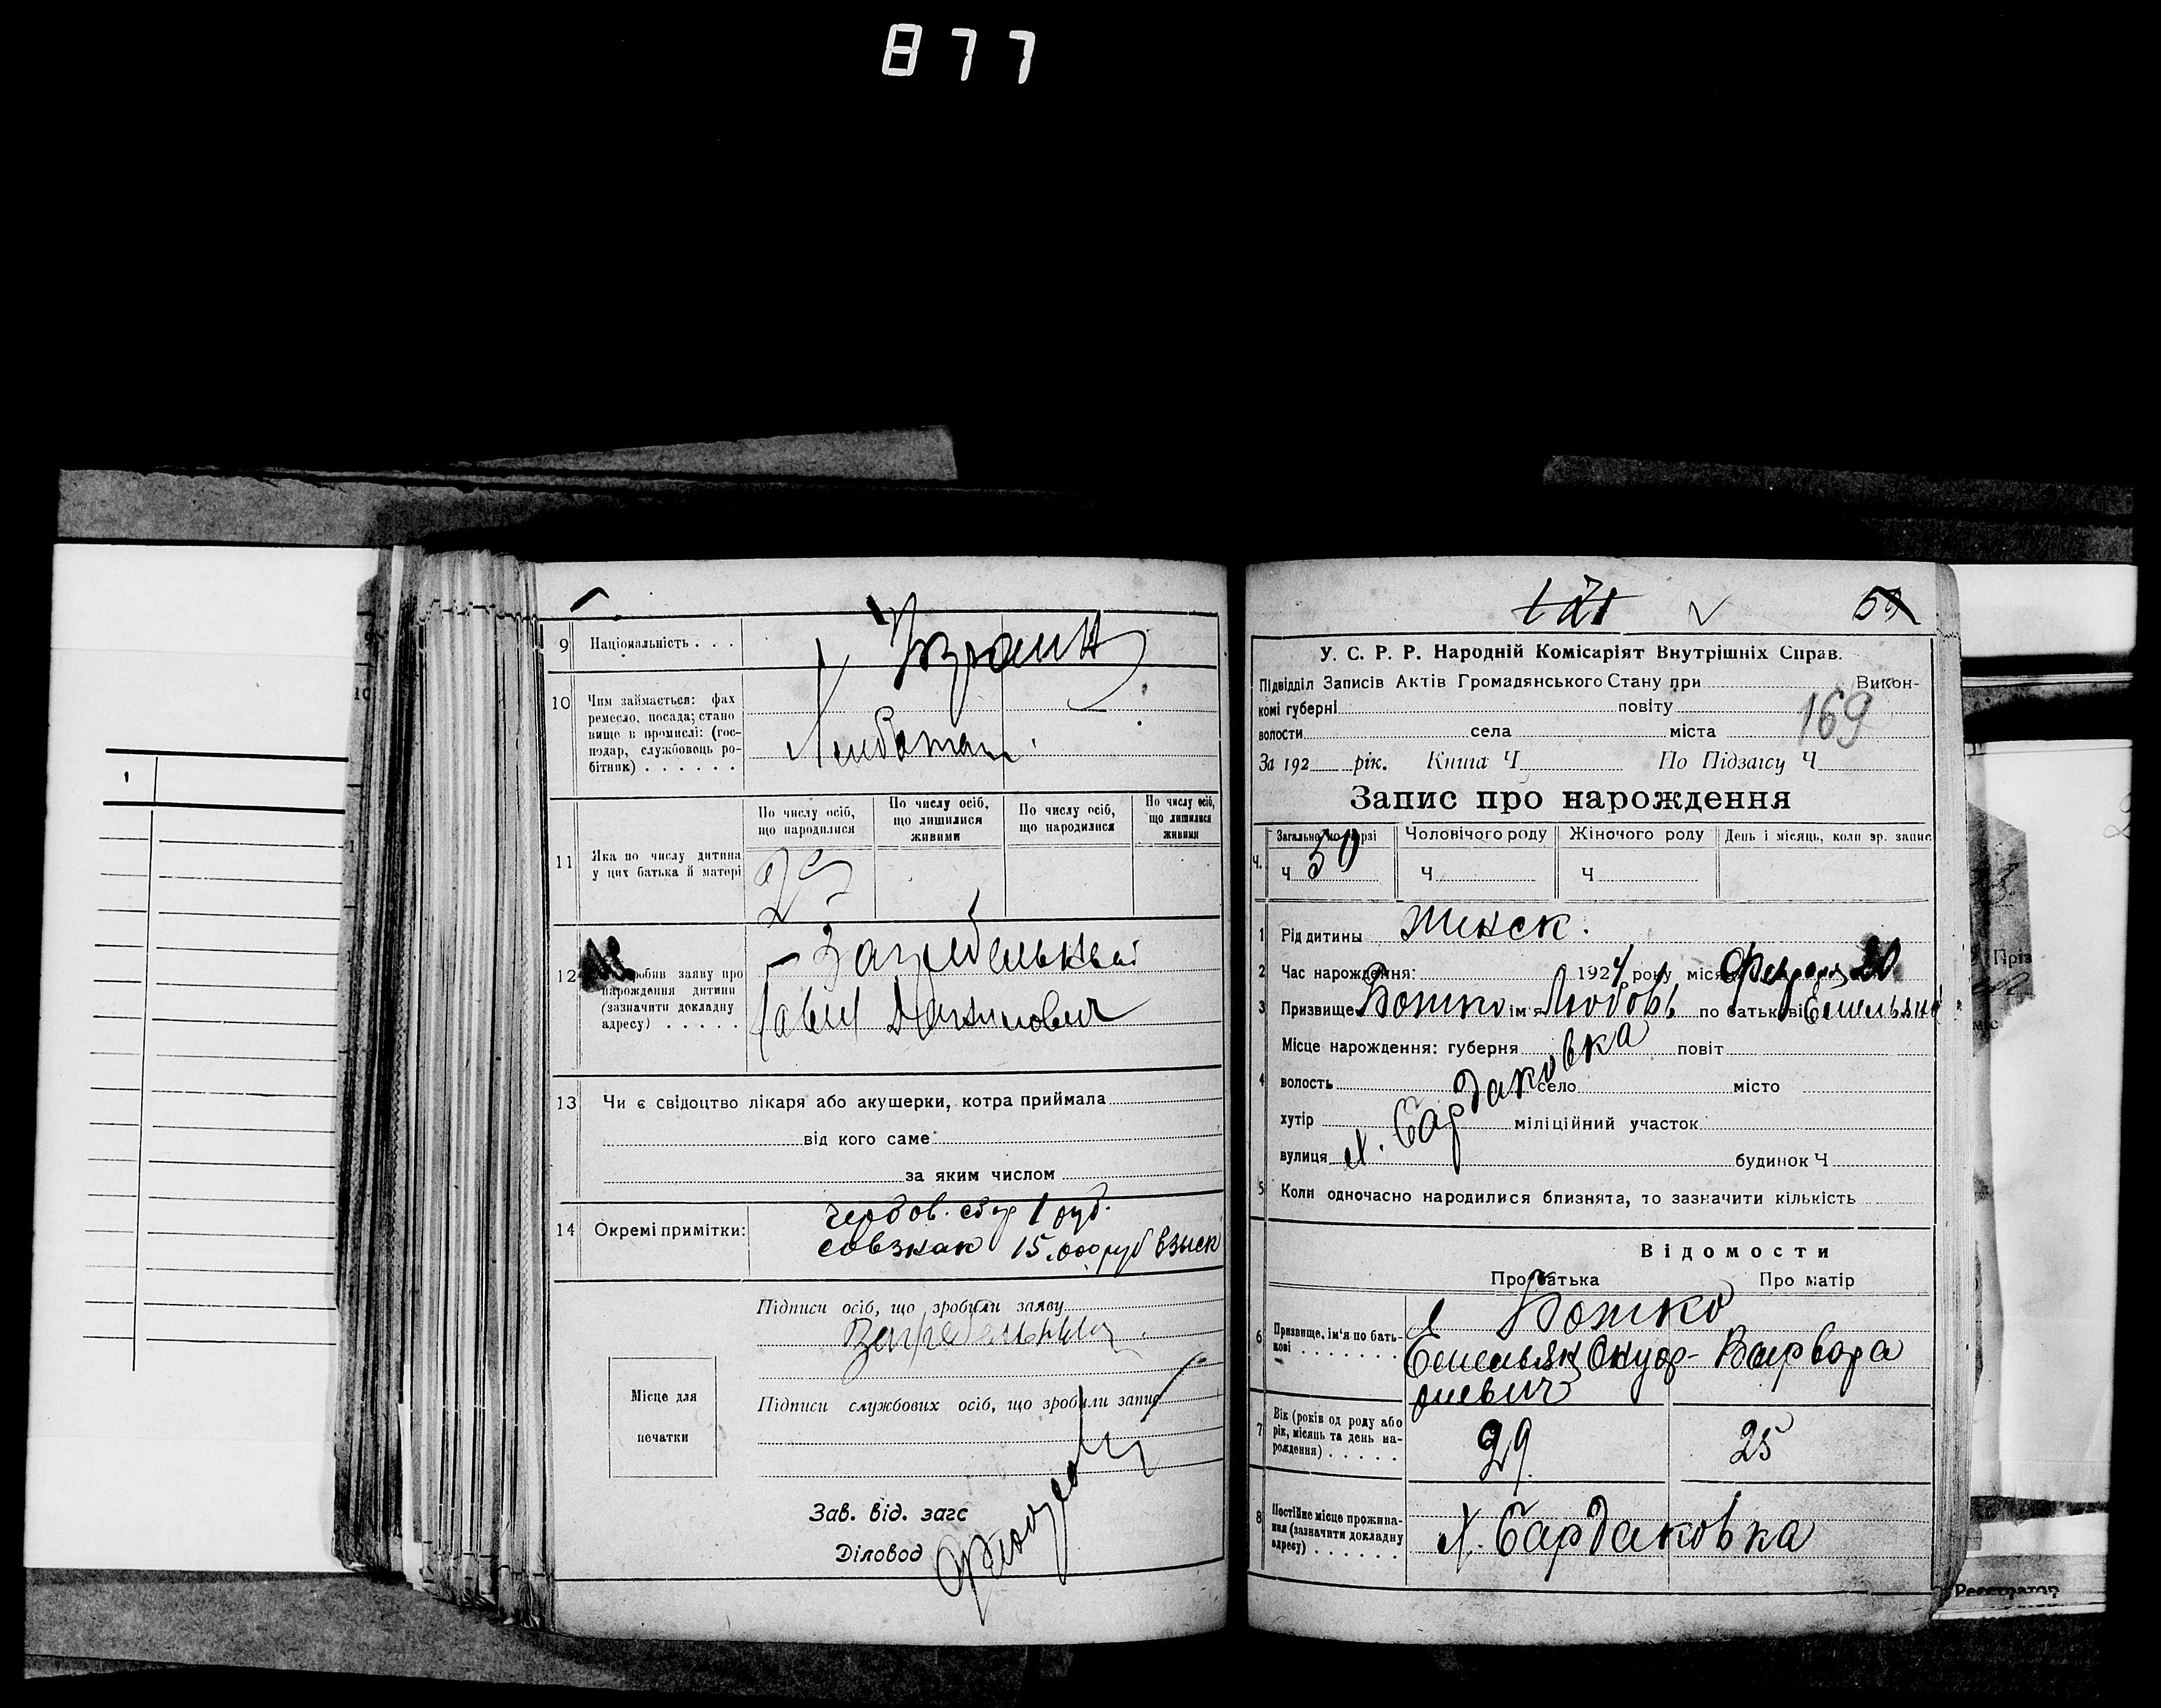 877
9 Національність . . .
Украин
10 Чим займається: фах
ремесло, посада; стано
вище в промислі: (гос-
подар, службовець ро-
бітник) . . . . . .
Хлебопаш.
По числу осіб,
що народилися
По числу осіб,
що лишилися
живими
По числу осіб,
що народилися
По числу осіб,
що лишилися
живими
11 Яка по числу дитина
у цих батька й матері
12 робив заяву про
народження дитини
(зазначити докладну
адресу) . . . . .
Павел
13 Чи є свідоцтво лікаря або акушерки, котра приймала
від кого саме
за яким числом
14 Окремі примітки:
гербов. сбор 1 руб.
совзнак 15.000 руб взыск
Підписи осіб, що зробили заяву
Місце для
печатки
Підписи службових осіб, що зробили запис
Зав. від. загс
Діловод
121
59
У. С. Р. Р. Народній Комісаріят Внутрішніх Справ.
Підвідділ Записів Актів Громадянського Стану при Викон-
комі губерні повіту
волости села міста
169
За 192 рік. Книга Ч По Підзаісу Ч
Запис про народження
Загально по Чоловічого роду Жіночого роду День і місяць, коли зр. запис
Ч. Ч 59 Ч Ч
1 Рід дитини женск.
2 Час народження: 1924 року міся Февраля 20
3 Призвище Божко ім'я Любовь по батькові Емельяно
Місце народження: губерня повіт
4 волость село місто
хутір міліційний участок
вулиця х. Сардаковка будинок Ч
5 Коли одночасно народилися близнята, то зазначити кількість
Відомости
Про батька Про матір
6 Призвище, ім'я по бать-
кові . . . . . . .
Божко
Емельян Онуф- Варвара
риевич
7 Вік (років од роду або
рік, місяць та день на-
рождення) . . . . .
29 25
8 Постійне місце прожива-
ння (зазначити докладну
адресу) . . . . . .
х. Сардаковка
Пріз
Реєстратор